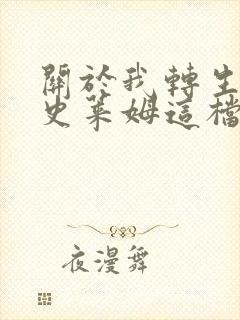 關於我轉生
史萊姆這檔
夜漫舞